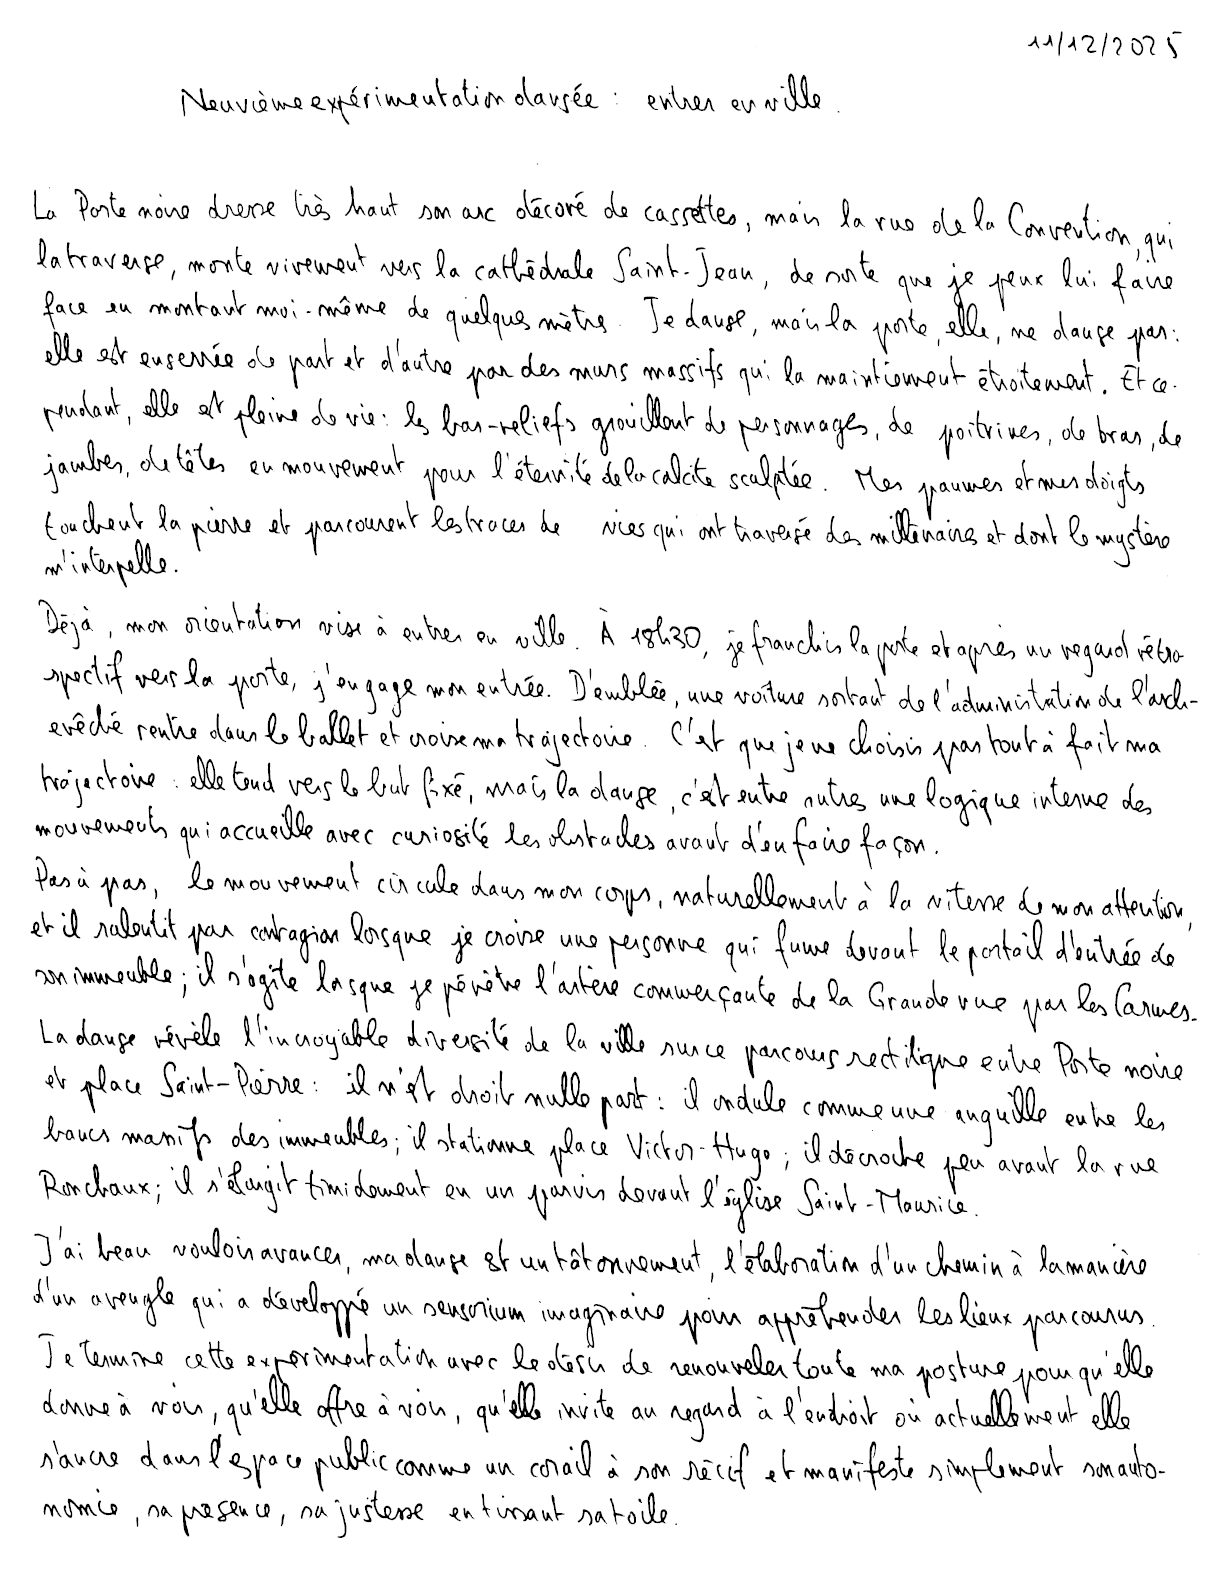 11/12/2025
Neuvième expérimentation dansée : entrer en ville.
La Porte noire dresse très haut son arc décoré de cassettes, mais la rue de la Convention, qui
la traverse, monte vivement vers la cathédrale Saint-Jean, de sorte que je peux lui faire
face en montant moi-même de quelques mètres. Je danse, mais la porte, elle, ne danse pas :
elle est enserrée de part et d'autre par des murs massifs qui la maintiennent étroitement. Et ce-
pendant, elle est pleine de vie : les bas-reliefs grouillent de personnages, de poitrines, de bras, de
jambes, de têtes en mouvement pour l'éternité de la calcite sculptée. Mes paumes et mes doigts
touchent la pierre et parcourent les traces de vies qui ont traversé des millénaires et dont le mystère
m'interpelle.
Déjà, mon orientation vise à entrer en ville. À 18h30, je franchis la porte et après un regard rétro-
spectif vers la porte, j'engage mon entrée. D'emblée, une voiture sortant de l'administration de l'arch-
evêché rentre dans le ballet et croise ma trajectoire. C'est que je ne choisis pas tout à fait ma
trajectoire : elle tend vers le but fixé, mais la danse, c'est entre autres une logique interne des
mouvements qui accueille avec curiosité les obstacles avant d'en faire façon.
Pas à pas, le mouvement circule dans mon corps, naturellement à la vitesse de mon attention,
et il ralentit par contagion lorsque je croise une personne qui fume devant le portail d'entrée de
son immeuble ; il s'agite lorsque je pénètre l'artère commerçante de la Grande rue par les Carmes.
La danse révèle l'incroyable diversité de la ville sur ce parcours rectiligne entre Porte noire
et place Saint-Pierre : il n'est droit nulle part : il ondule comme une anguille entre les
bancs massifs des immeubles ; il stationne place Victor-Hugo ; il décroche peu avant la rue
Ronchaux ; il s'élargit timidement en un parvis devant l'église Saint-Maurice.
J'ai beau vouloir avancer, ma danse est un tâtonnement, l'élaboration d'un chemin à la manière
d'un aveugle qui a développé un sensorium imaginaire pour appréhender les lieux parcourus.
Je termine cette expérimentation avec le désir de renouveler toute ma posture pour qu'elle
donne à voir, qu'elle offre à voir, qu'elle invite au regard à l'endroit où actuellement elle
s'ancre dans l'espace public comme un corail à son récif et manifeste simplement son auto-
nomie, sa présence, sa justesse en tissant sa toile.